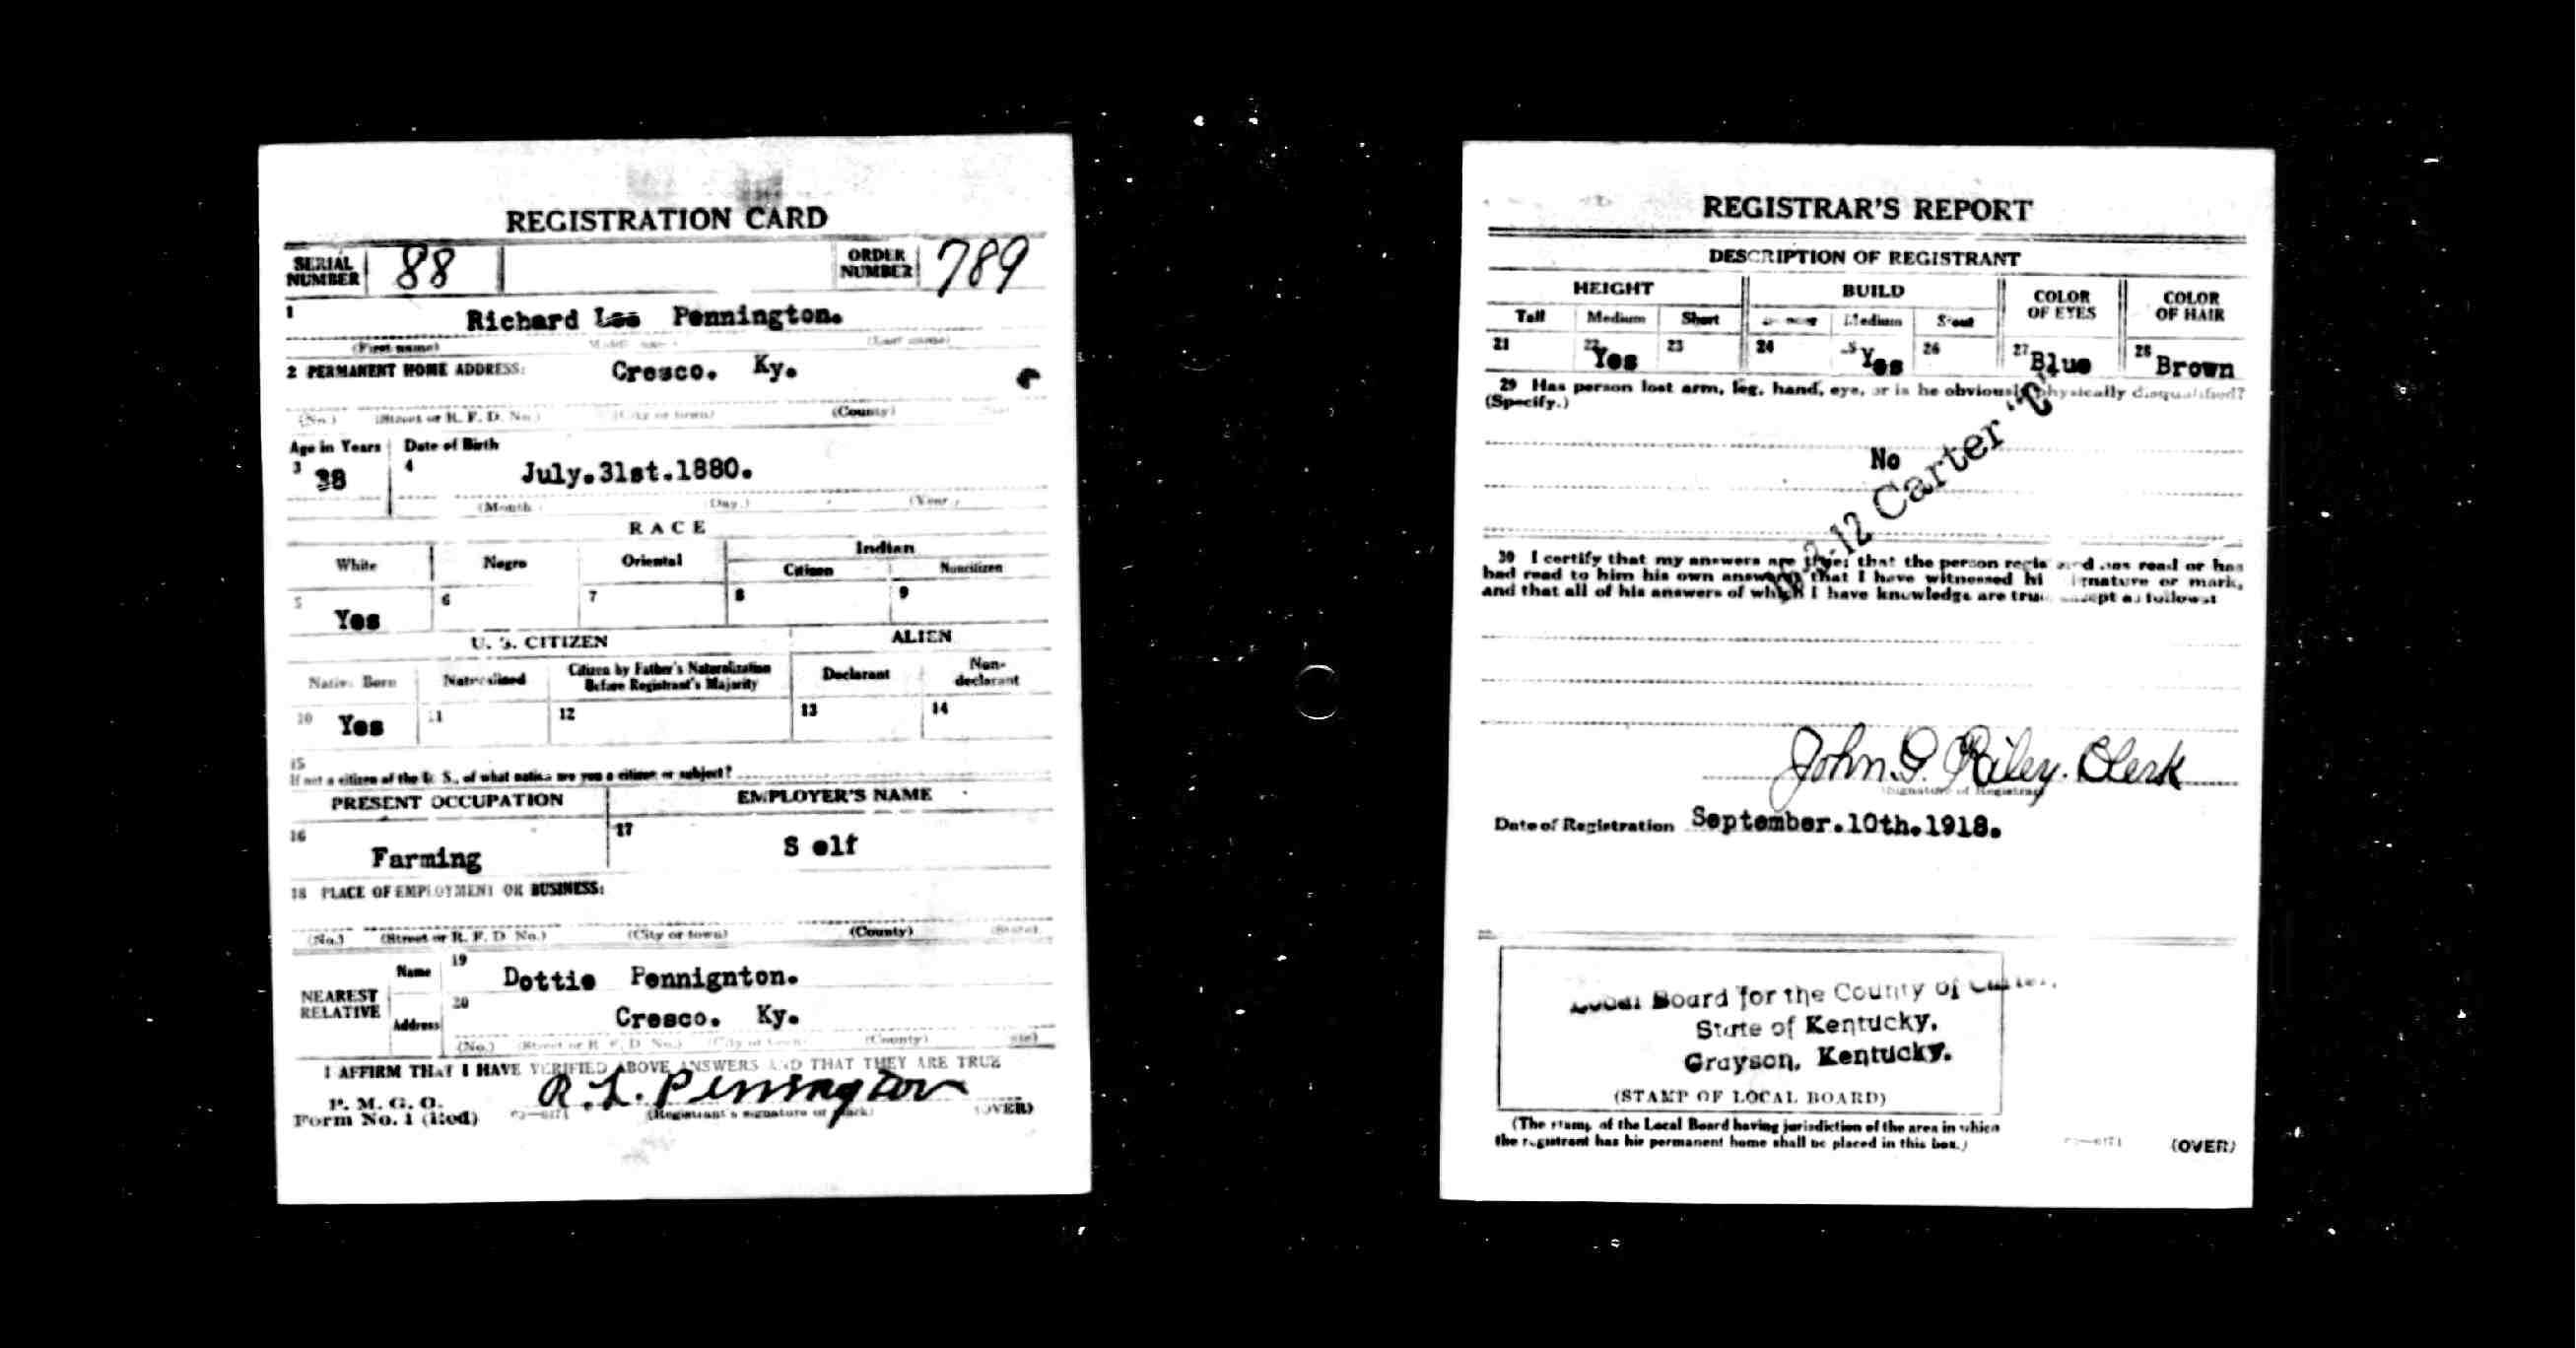 REGISTRATION CARD
SERIAL NUMBER 88 ORDER NUMBER 789
1 Richard Lee Pennington.
(First name) (Last name)
2 PERMANENT HOME ADDRESS: Cresco. Ky.
(No.) (Street or R. F. D. No.) (City or town) (County)
Age in Years Date of Birth
3 38 4 July.31st.1880.
(Month) (Day.) (Year.)
RACE
White Negro Oriental Indian
Citizen Noncitizen
5 Yes 6 7 8 9
U. S. CITIZEN ALIEN
Native Born Naturalized Citizen by Father's Naturalization Before Registrant's Majority Declarant Non-declarant
10 Yes 11 12 13 14
15
If not a citizen of the U. S., of what nation are you a citizen or subject?
PRESENT OCCUPATION EMPLOYER'S NAME
16 Farming 17 S elf
18 PLACE OF EMPLOYMENT OR BUSINESS:
(No.) (Street or R. F. D. No.) (City or town) (County) (State)
NEAREST RELATIVE
Name 19 Dottie Pennignton.
Address 20 Cresco. Ky.
(No.) (Street or R. F. D. No.) (City or town) (County)
I AFFIRM THAT I HAVE VERIFIED ABOVE ANSWERS AND THAT THEY ARE TRUE
P. M. G. O.
Form No. 1 (Red) R. L. Pennington
(Registrant's signature or mark) (OVER)
REGISTRAR'S REPORT
DESCRIPTION OF REGISTRANT
HEIGHT BUILD COLOR OF EYES COLOR OF HAIR
Tall Medium Short Medium Stout
21 22 Yes 23 24 25 Yes 26 27 Blue 28 Brown
29 Has person lost arm, leg, hand, eye, or is he obviously physically disqualified?
(Specify.)
No
Carter "C"
30 I certify that my answers are true; that the person registered has read or has
had read to him his own answers; that I have witnessed his signature or mark,
and that all of his answers of which I have knowledge are true, except as follows:
John G. Riley. Clerk
(Signature of Registrar)
Date of Registration September.10th.1918.
Local Board for the County of Carter,
State of Kentucky.
Grayson, Kentucky.
(STAMP OF LOCAL BOARD)
(The stamp of the Local Board having jurisdiction of the area in which
the registrant has his permanent home shall be placed in this box.)
(OVER)